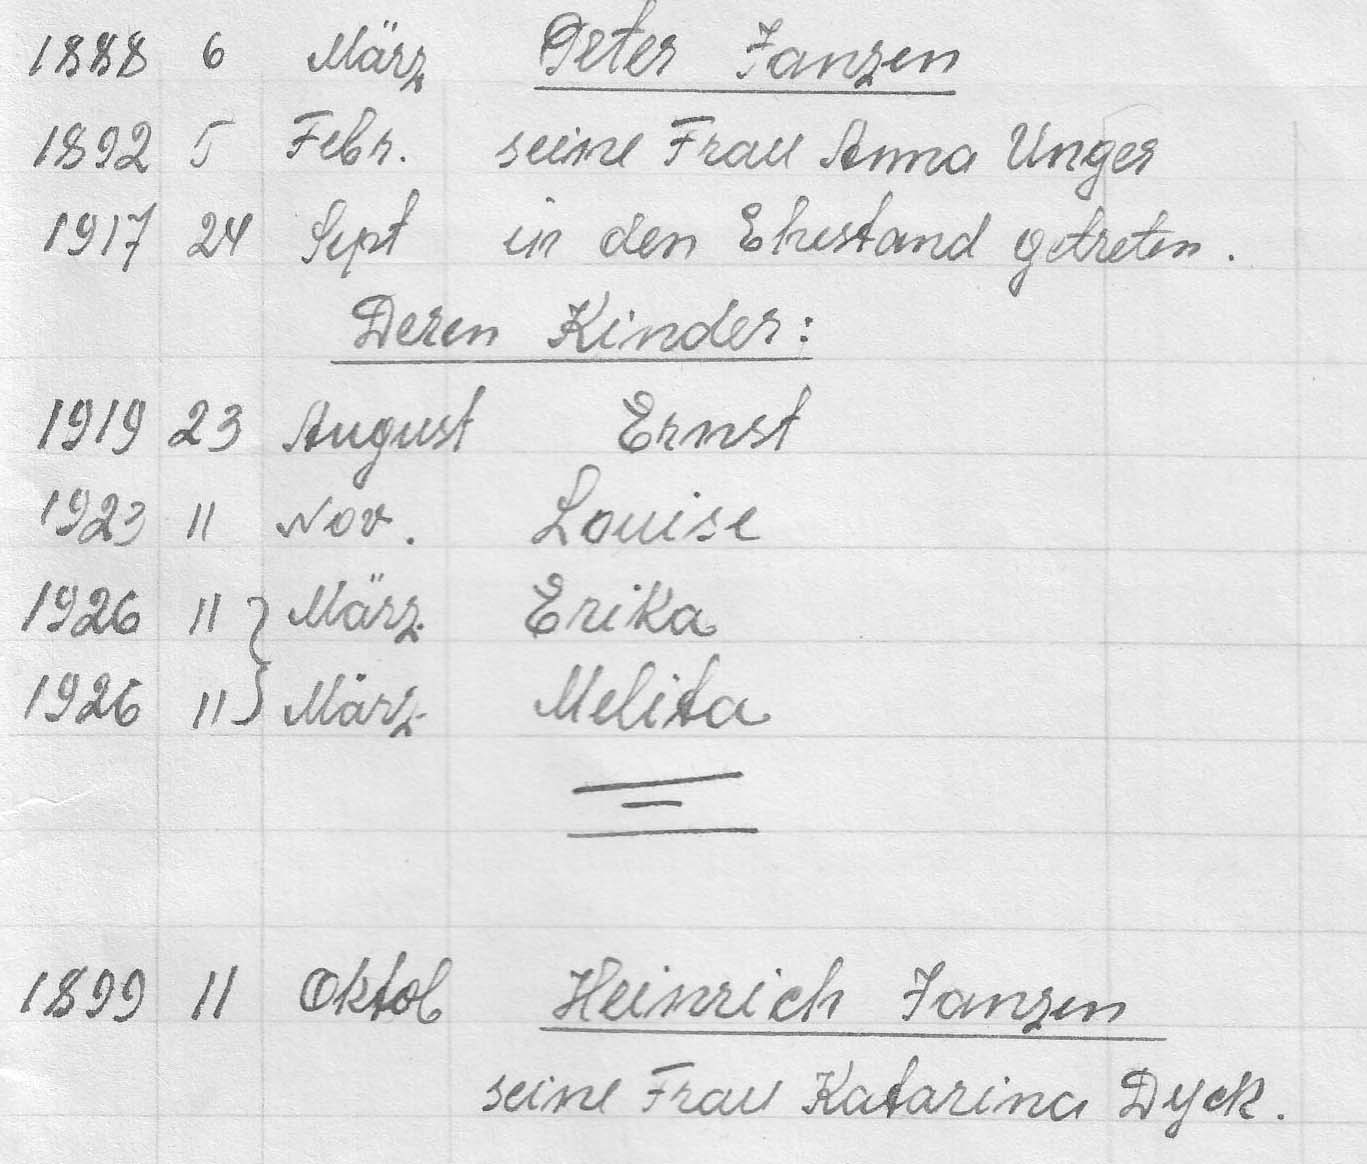 1888 6 März Peter Janzen
1892 5 Febr. seine Frau Anna Unger
1917 24 Sept in den Ehestand getreten.
Deren Kinder:
1919 23 August Ernst
1923 11 Nov. Louise
1926 11 } März Erika
1926 11 } März Melita
1899 11 Oktob Heinrich Janzen
seine Frau Katarina Dyck.